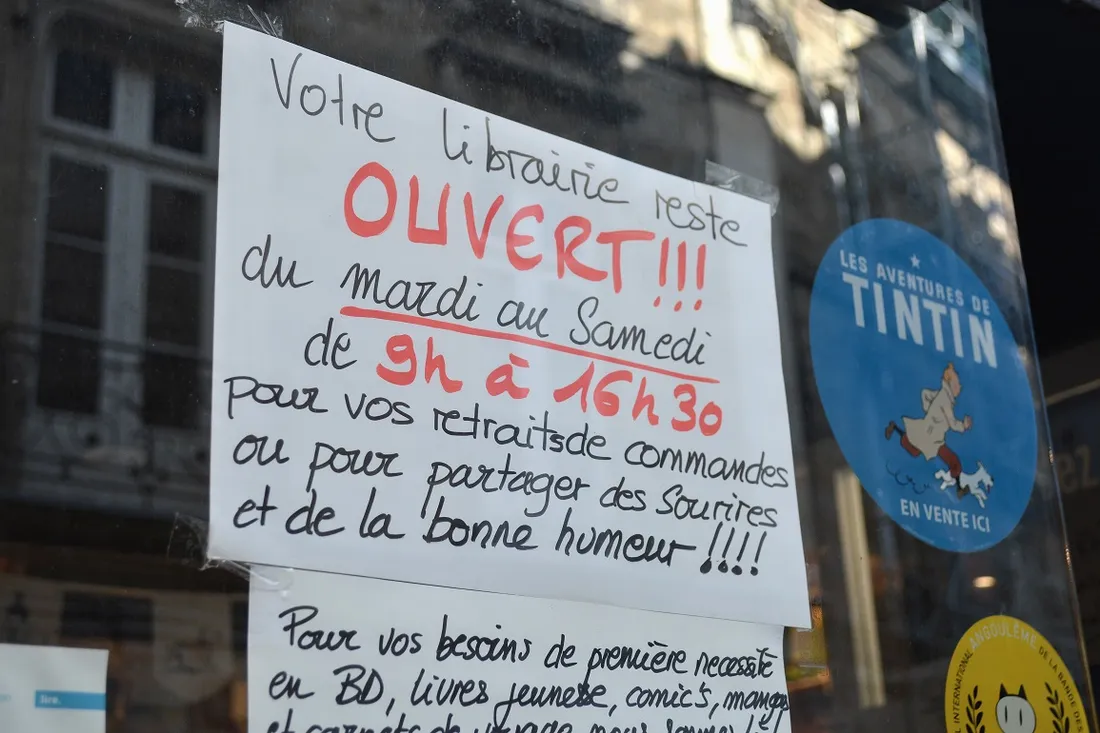 Votre librairie reste
OUVERT!!!
du mardi au Samedi
de 9h à 16h30
pour vos retraits de commandes
ou pour partager des Sourires
et de la bonne humeur !!!!
Pour vos besoins de première necessité
en BD, livres jeunesse, comic's, mangas
et carnets de voyage nous sommes là!
LES AVENTURES DE
TINTIN
EN VENTE ICI
INTERNATIONAL ANGOULÊME DE LA BANDE DES
lire.